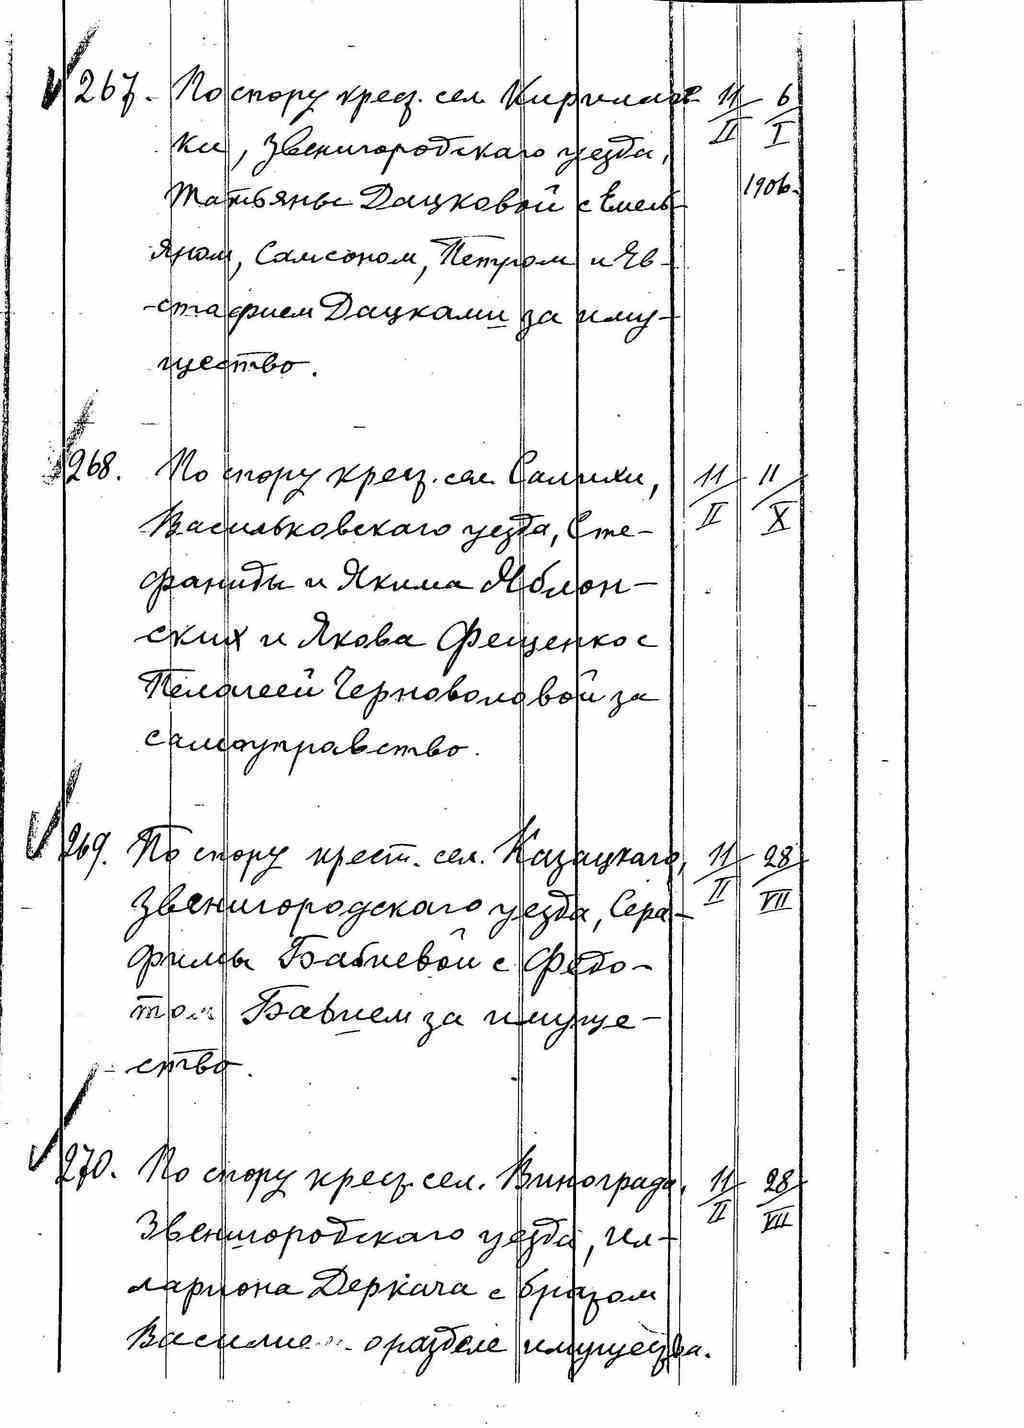 267. По спору крест. сел. Кириллов- 11/II 6/I
ки, Звенигородскаго уезда, 1906.
Татьяны Дацковой с Емель-
яном, Самсоном, Петром и Ев-
стафием Дацками за иму-
щество.
268. По спору крест. сел. Салихи, 11/II 11/X
Васильковскаго уезда, Сте-
фаниды и Якима Яблон-
ских и Якова Фещенко с
Пелагеей Черноволовой за
самоуправство.
269. По спору крест. сел. Казацкаго, 11/II 28/VII
Звенигородскаго уезда, Сера-
фимы Бабиевой с Федо-
том Бабием за имуще-
ство.
270. По спору крест. сел. Винограда, 11/II 28/VII
Звенигородскаго уезда, Ил-
лариона Деркача с братом
Василием о разделе имущества.